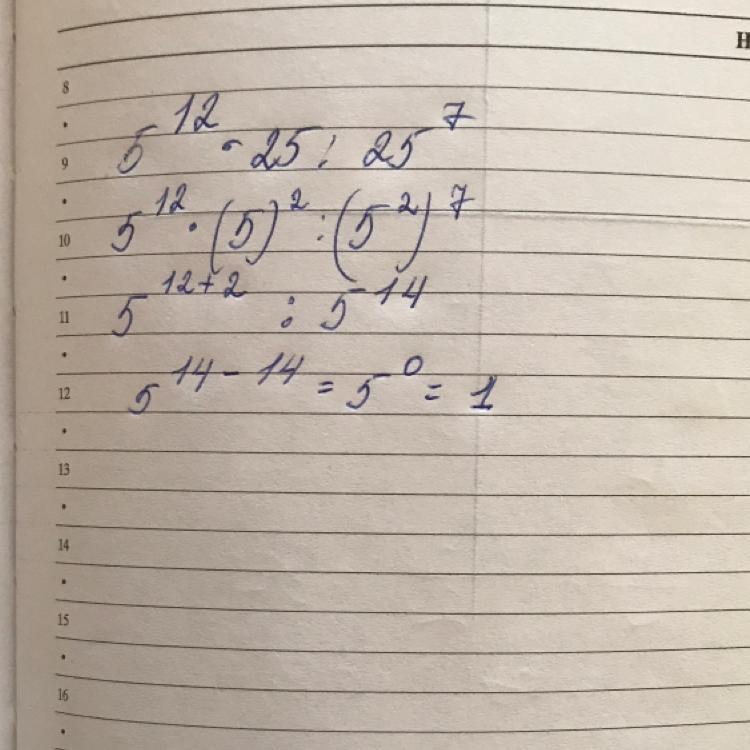 H
8
5^12 · 25 : 25^7
9
5^12 · (5)^2 : (5^2)^7
10
5^12+2 : 5^14
11
5^14-14 = 5^0 = 1
12
13
14
15
16